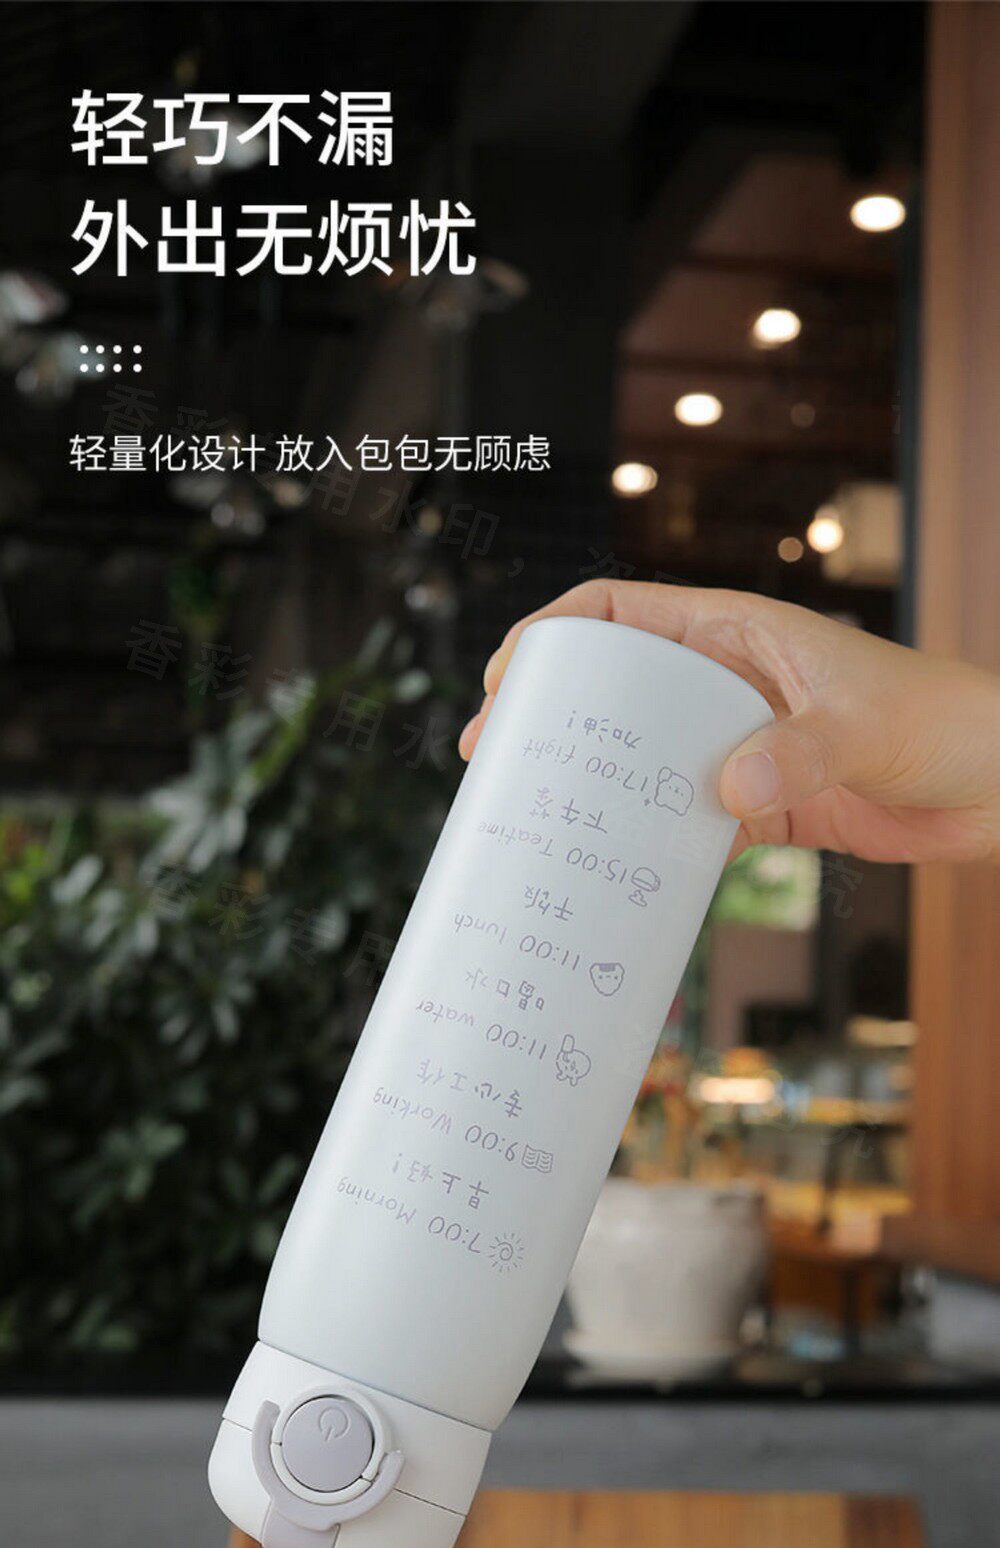 轻巧不漏
外出无烦忧
轻量化设计 放入包包无顾虑
7:00 Morning
早上好!
9:00 Working
专心工作
11:00 water
喝口水
11:00 lunch
干饭
15:00 Teatime
下午茶
17:00 fight
加油!
香彩专用水印,
香彩专用水
香彩专用